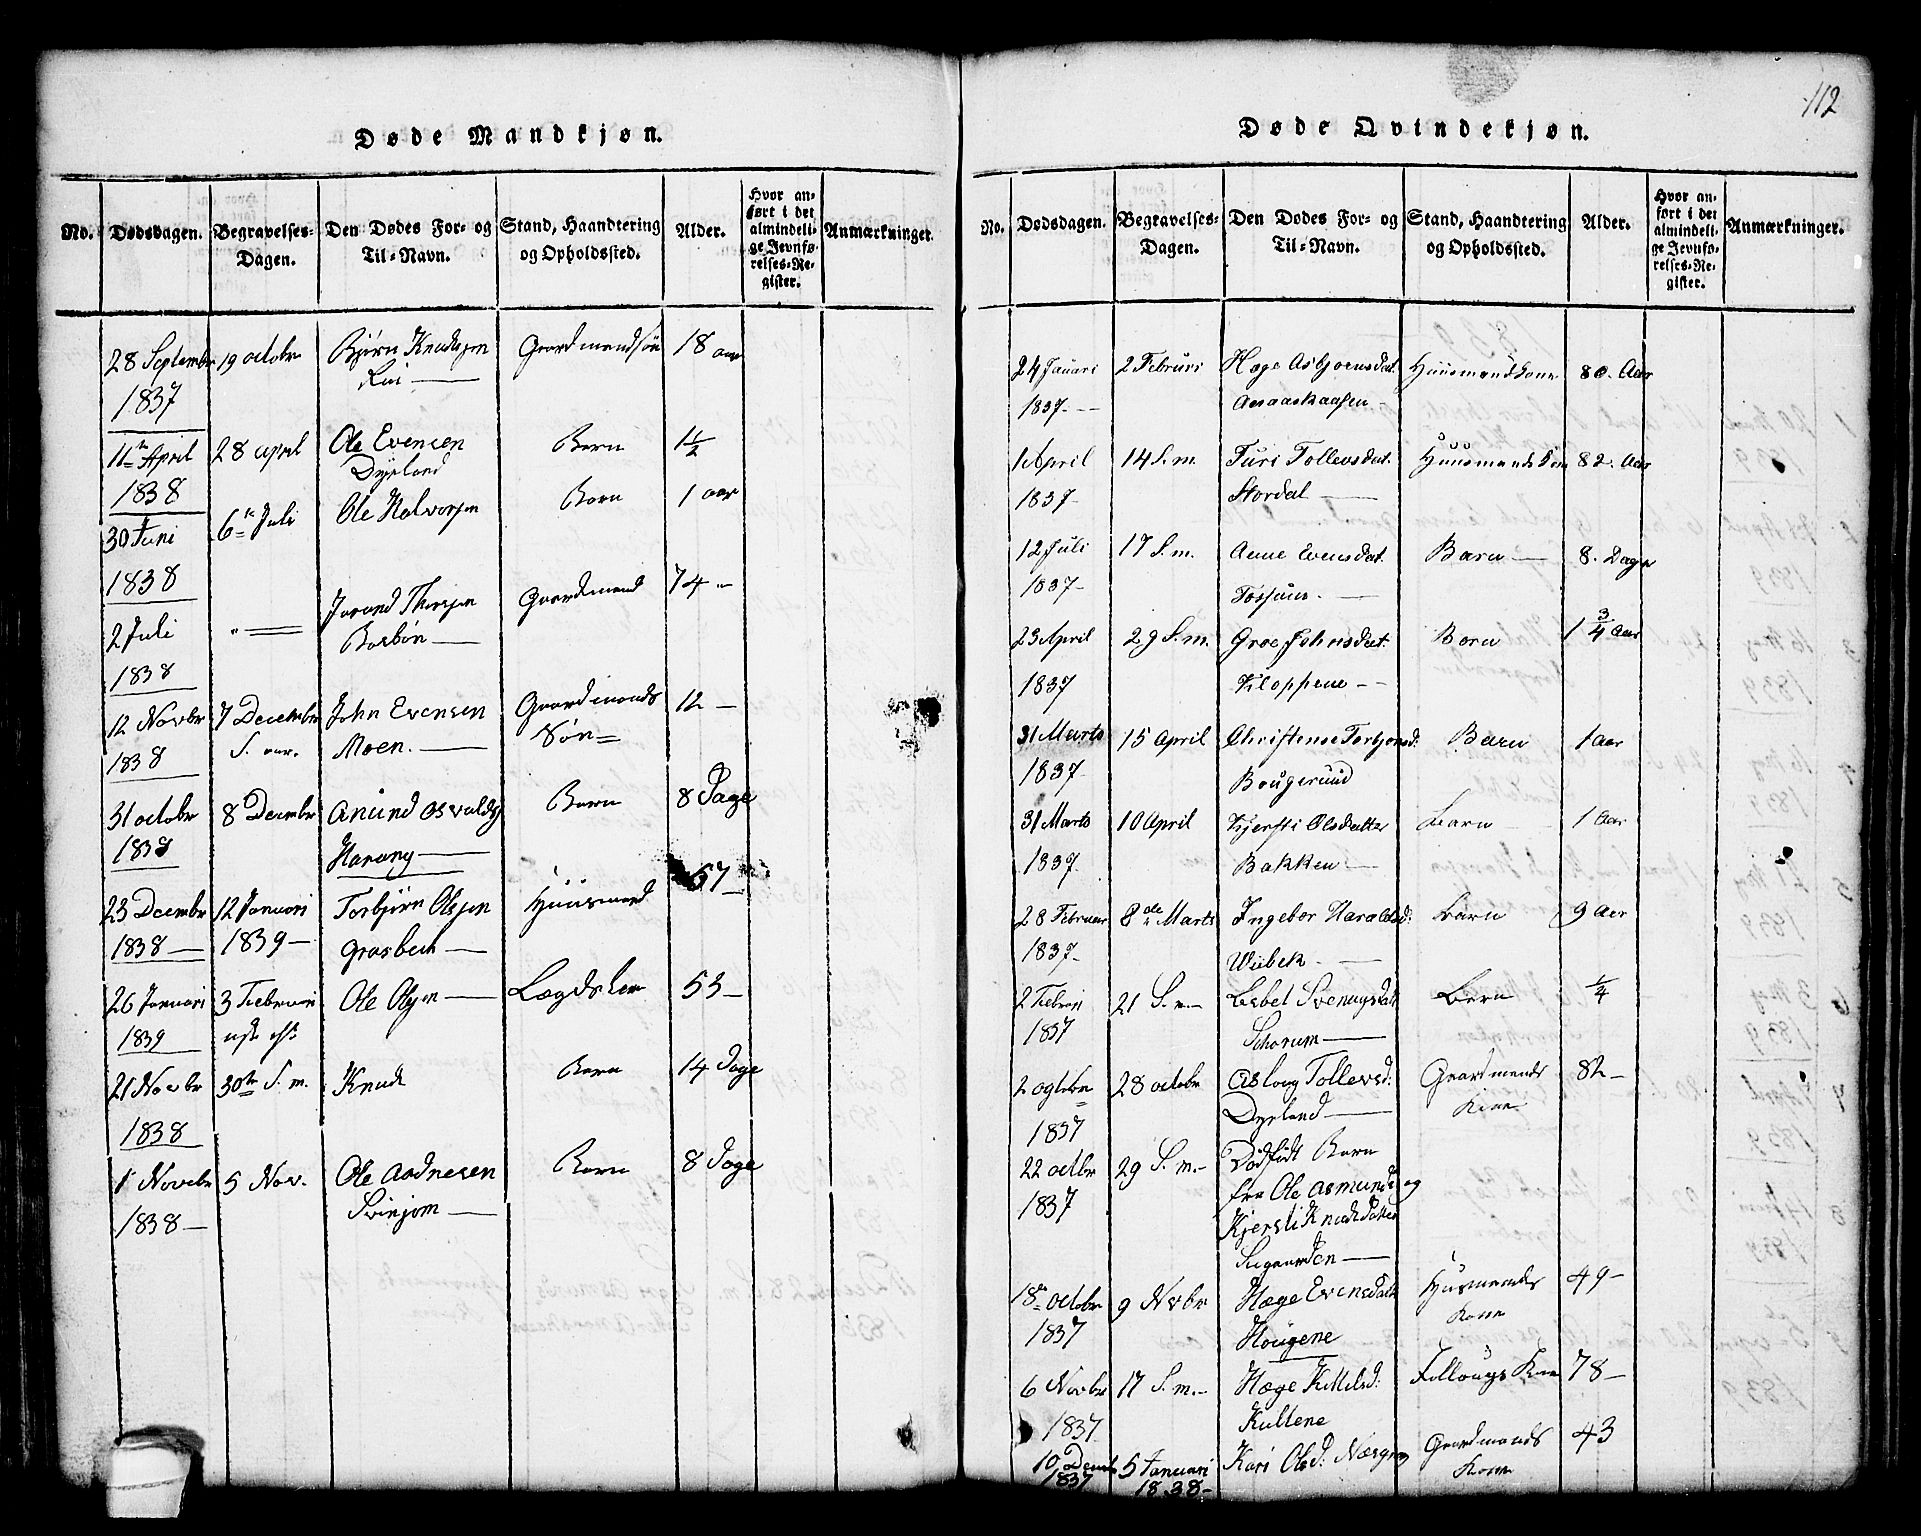 112
Døde Mandkjøn.
No. Dødsdagen. Begravelses-Dagen. Den Dødes For- og Til-Navn. Stand, Haandtering og Opholdssted. Alder. Hvor anført i det almindelige Jevnførelses-Register. Anmærkninger.
28 September 19 octobr Bjørn Knudsen Gaardmandsøn 18 aar
1837 Lui
11te April 28 april Ole Evensen Barn 1½
1838 Dyrland
30 Juni 6te Juli Ole Halvorsen Barn 1 aar
1838
2 Juli Jorand Thorsen Gaardmand 74
1838 Bosbøn
12 Novbr 7 Decembr John Evensen Gaardmands 12
1838 Moen. Søn
31 octobr 8 Decembr Anund Osvalds Barn 8 Dage
1838
23 Decembr 12 Januari Torbjørn Olssen Huusmand 67
1838 1839 Grosbech
26 Januari 3 Februari Ole Olsen Lægdslem 53
1839
21 Novbr 30te S. m. Knud Barn 14 Dage
1838
1 Novebr 5 Nov. Ole Aadnesen Barn 8 Dage
1838 Svinjom
Døde Qvindekjøn.
No. Dødsdagen. Begravelses-Dagen. Den Dødes For- og Til-Navn. Stand, Haandtering og Opholdssted. Alder. Hvor anført i det almindelige Jevnførelses-Register. Anmærkninger.
24 Januari 2 Februri Hæge Asbjoensdat. Huusmandkone 80. Aar
1837
1 April 14 S.m. Turi Tollevsdat. Huusmands Kon 82. Aar
1837 Stordal
12 Juli 17 S.m. Anne Evensdat. Barn 8. Dage
1837
23 April 29 S.m. Groe Johnsdat. Barn 1¾ Aar
1837 Kloppene
31 Marts 15 April Christense Torbjønsd. Barn 1 Aar
1837 Bougerund
31 Marts 10 April Kjersti Olsdatter Barn 1 Aar
1837 Bakken
28 Februar 8de Marts Ingebor Haraldsd: Barn 9 Aar
1837 Wiibek
2 Februari 21 S. m Lisbet Svenugsdatt Barn ¼
1837
2 ogtobr 28 octobr Asloug Tollevsd: Gaardmands 82
1837 Dyrland Kone
22 octbr 29 S. m. Dødfødt Barn
1837 fra Ole Asmunds og
Kjersti Knudsdatter
Sigaarden
18de octobr 9 Novbr Hæge Evensdatt Husmands 49
1837 Hougene Kone
6 Novbr 17 S.m. Hæge Kittilsd: Kone 78
1837 Kullene
10 Decmb 5 Januari Kari Olsd: Gaardmands 43
1837 1838 Kone